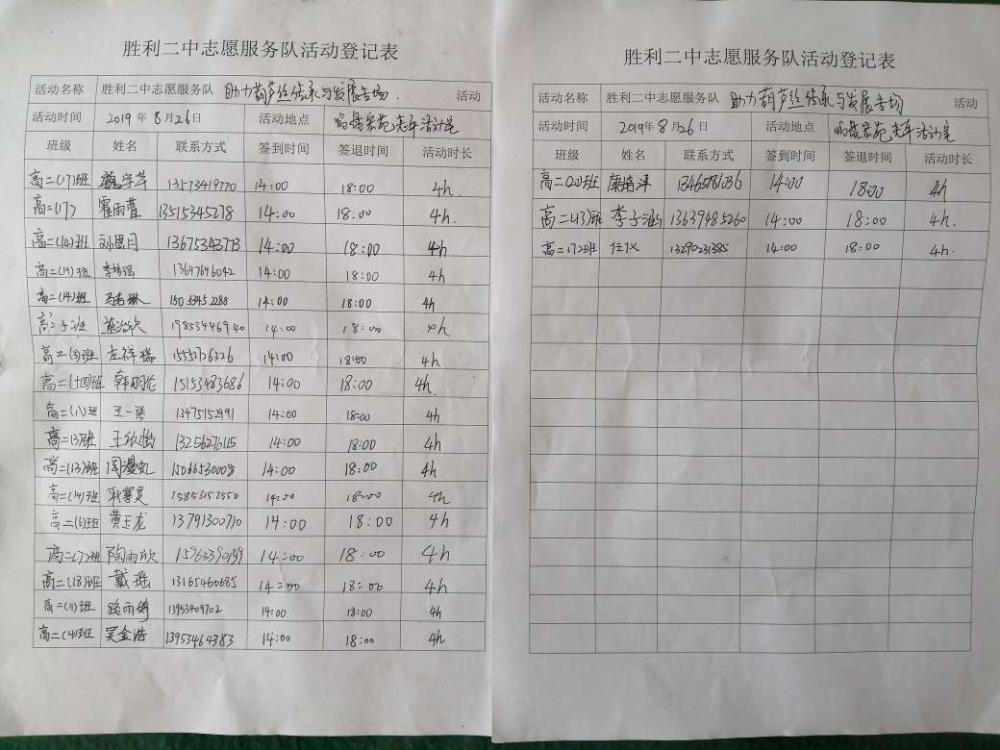 胜利二中志愿服务队活动登记表
活动名称 胜利二中志愿服务队 助力葫芦丝传承与发展专场. 活动
活动时间 2019年8月26日 活动地点 老年活动室
班级 姓名 联系方式 签到时间 签退时间 活动时长
高二(17)班 13573419770 14:00 18:00 4h
高二(17) 霍雨萱 13515345278 14:00 18:00 4h.
高二(14)班 刘思月 13675343773 14:00 18:00 4h
高二(14)班 李培瑶 13697696042 14:00 18:00 4h
高二(14)班 15033452288 14:00 18:00 4h
14:00 18:00
高二(3)班 左祥瑞 14:00 18:00 4h
高二(十四)班 15153483686 14:00 18:00 4h.
高二(八)班 王一 13475152991 14:00 18:00 4h
高二13班 王欣怡 13256276115 14:00 18:00 4h
高二(13)班 周漫 15066530008 14:00 18:00 4h
高二(14)班 耿赛昊 15853152550 14:00 18:00 4h
高二(6)班 黄玉龙 13791300710 14:00 18:00 4h
高二(7)班 陶雨欣 15963390199 14:00 18:00 4h
高二(18)班 戴瑶 13165460685 14:00 18:00 4h
高二(11)班 路雨倩 13953409702 14:00 18:00 4h
高二(4)班 吴金浩 13953464383 14:00 18:00 4h
胜利二中志愿服务队活动登记表
活动名称 胜利二中志愿服务队 助力葫芦丝传承与发展专场 活动
活动时间 2019年8月26日 活动地点 老年活动室
班级 姓名 联系方式 签到时间 签退时间 活动时长
高二(20)班 14:00 18:00 4h
高二(13)班 李子涵 13639485260 14:00 18:00 4h.
高二(7)班 任仪 13290231385 14:00 18:00 4h.